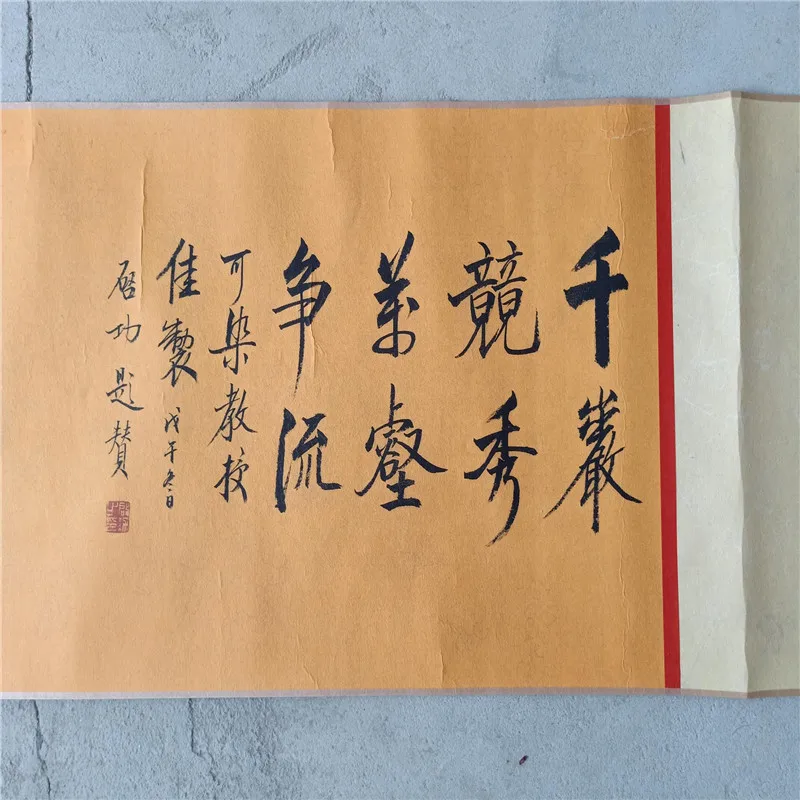 千巖
競秀
萬壑
争流
可染教授
佳製戊午冬日
启功题赞